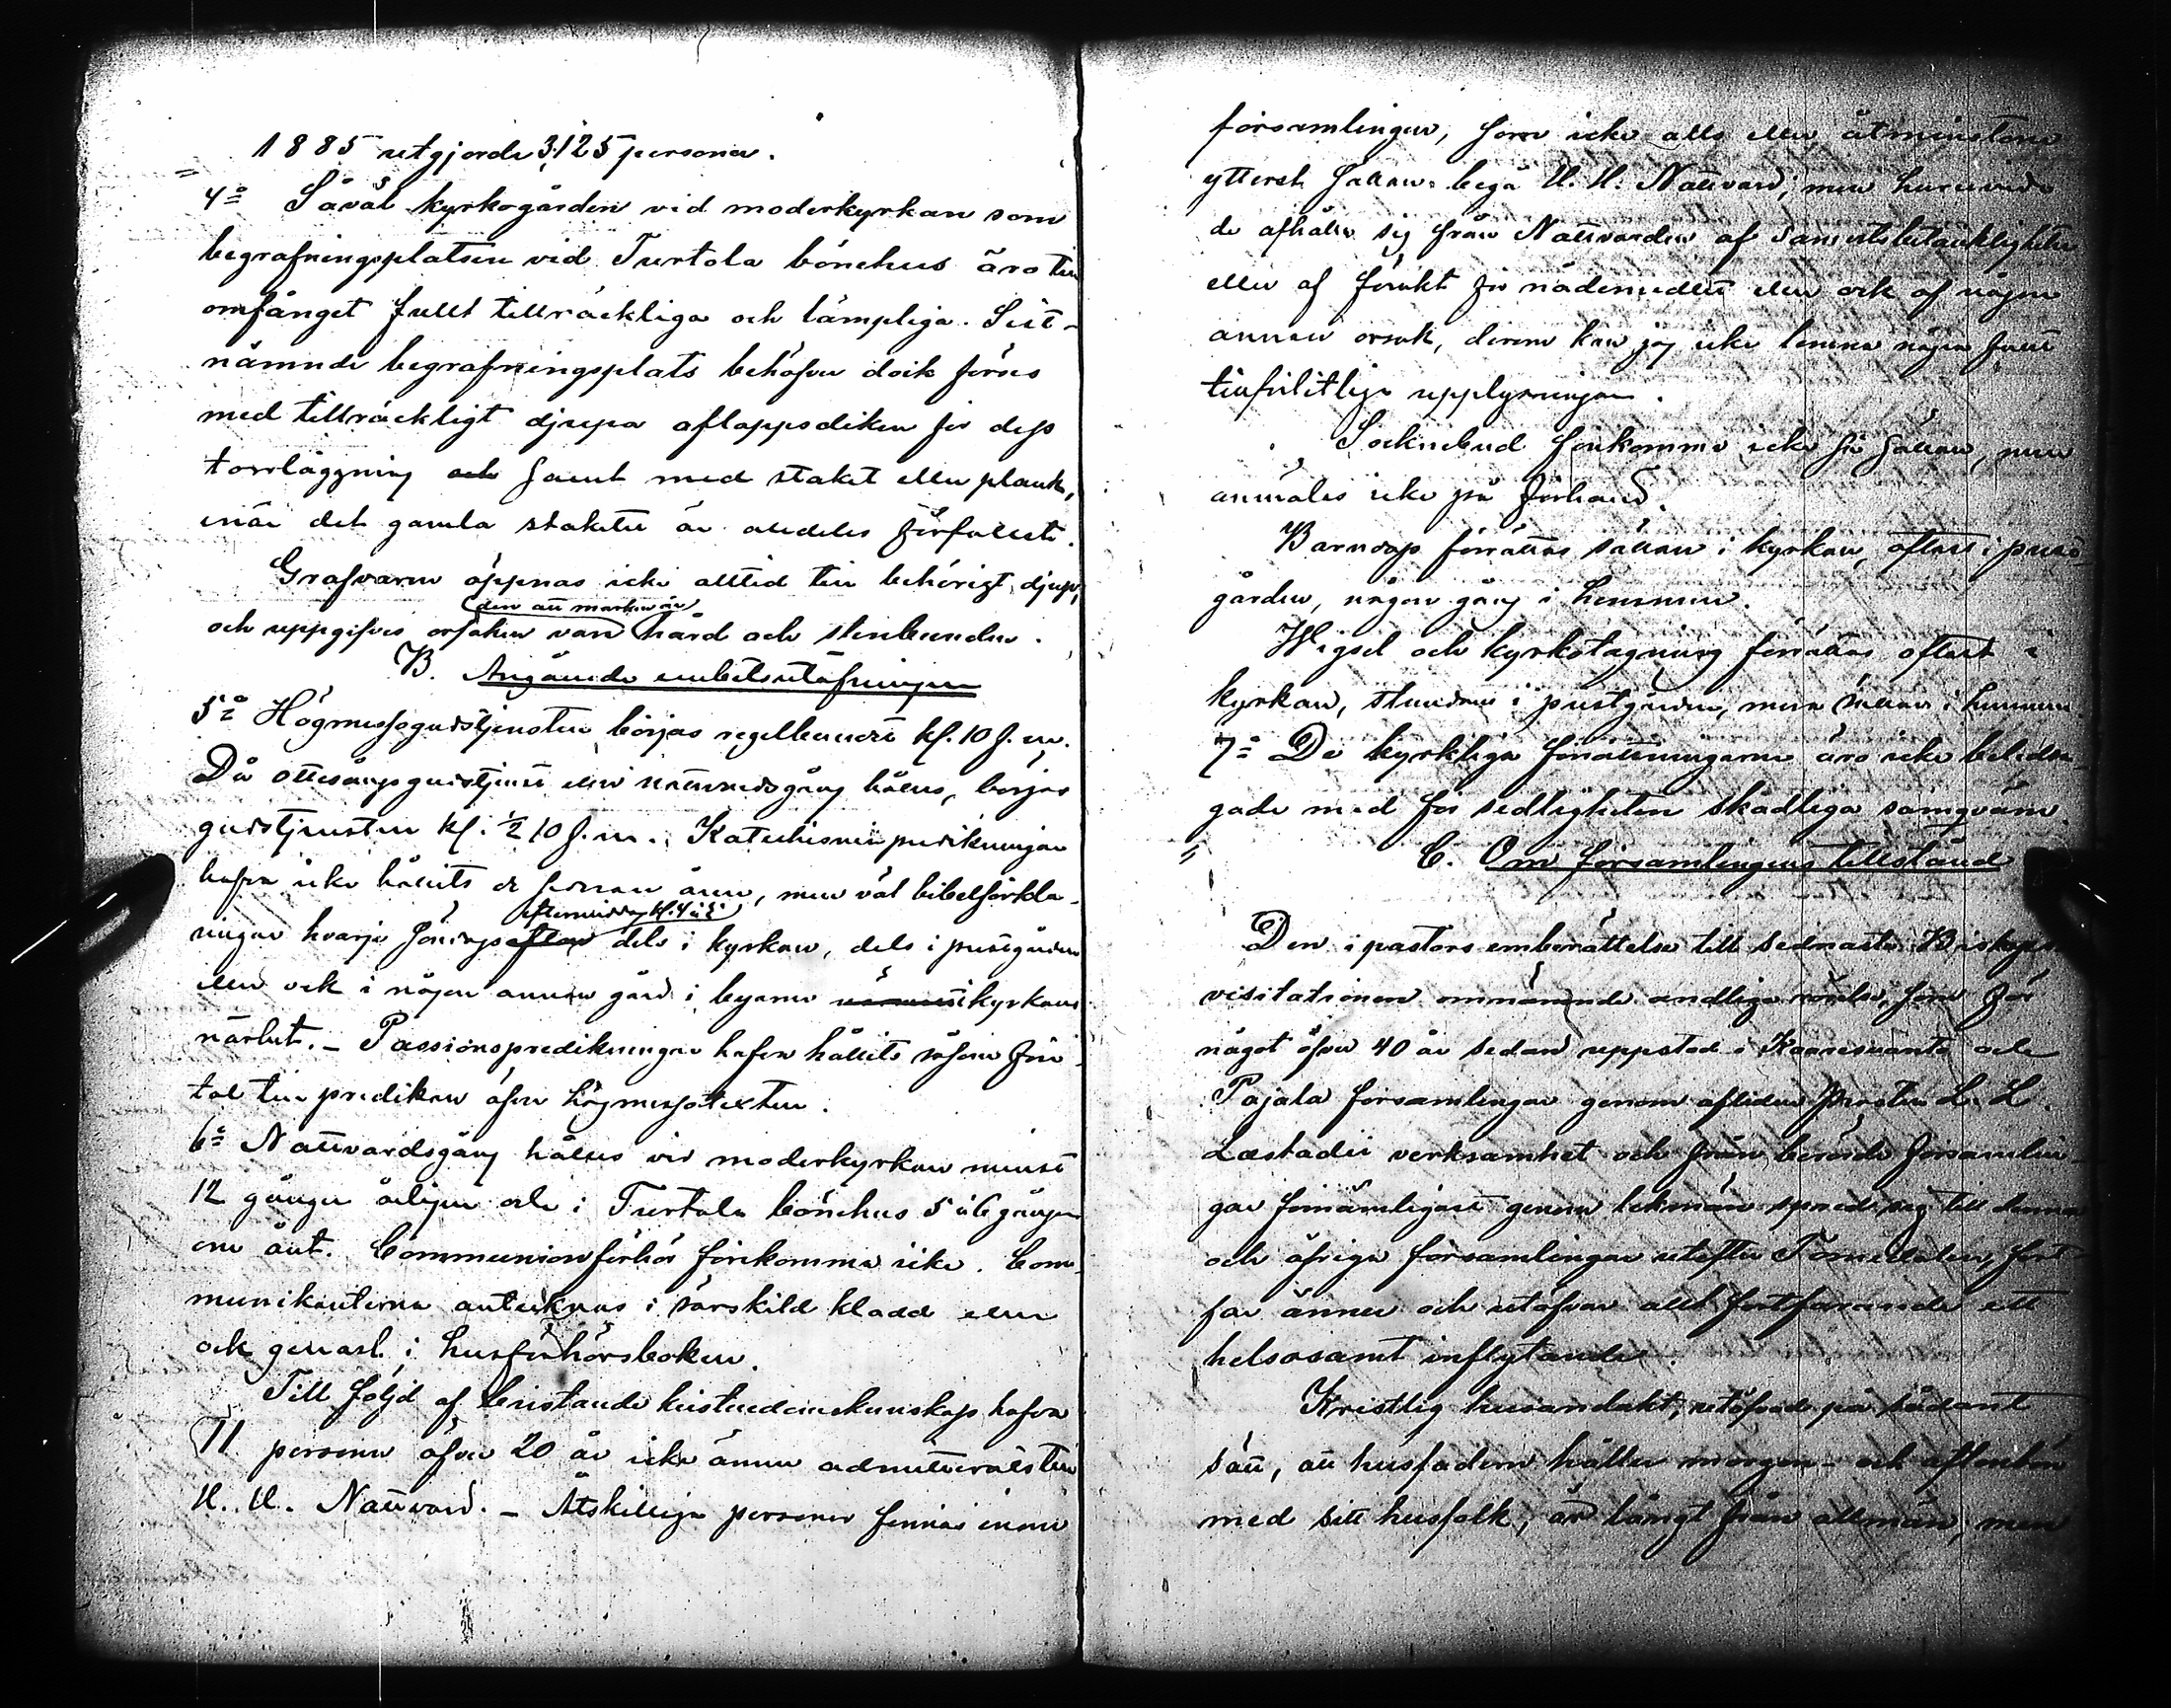 1885 utgjorde 3,125 personer.
4:o Såväl kyrkogården vid moderkyrkan som
begrafningsplatsen vid Turtola bönehus äro till
omfånget fullt tillräckliga och lämpliga. Sist-
nämnde begrafningsplats behöfver dock förses
med tillräckligt djupa aflappsdiken för dess
torrläggning och samt med staket eller plank,
enär det gamla staketet är alldeles förfallet.
Grafvarne öppnas icke alltid till behörigt djup,
den att marken är
och uppgifves orsaken vara hård och stenbunden.
B. Angående embetsutöfningen
5:o Högmessogudstjensten börjas regelbundet kl. 10 f.m.
Då ottesångsgudstjenst eller nattvardsgång hålles, börjas
gudstjensten kl. ½ 10 f.m. Katechismipredikningar
hafva icke hållits de förran ännu, men väl bibelförkla-
eftermiddag kl. 4 à 5
ringar hvarje söndagsafton dels i kyrkan, dels i prestgården
eller ock i någon annan gård i byarne närmast kyrkans
närhet. - Passionspredikningar hafva hållits såsom för-
tal till predikan öfver högmessotexten.
6:o Nattvardsgång hålles vid moderkyrkan minst
12 gånger årligen och i Turtola bönehus 5 à 6 gånger
om året. Communionförhör förekomma icke. Com-
munikanterna antecknas i särskild kladd eller
ock genast i husförhörsboken.
Till följd af bristande kristendomskunskap hafva
11 personer öfver 20 år icke ännu admitterats till
H. H. Nattvard. - Åtskilliga personer finnas inom
församlingen, som icke alls eller åtminstone
ytterst sällan begå H. H. Nattvard; men huruvida
de afhålla sig från Nattvarden af samvetsbetänkligheter
eller af förakt för nådemedlet eller ock af någon
annan orsak, derom kan jag icke lemna några fullt
tillförlitliga upplysningar.
Sockenbud förekomma icke så sällan, men
anmäles icke på förhand.
Barndop förrättas sällan i kyrkan, oftast i prest-
gården, någon gång i hemmen.
Wigsel och kyrkotagning förrättas oftast i
kyrkan, stundom i prestgården, mera sällan i hemmen.
7:o De kyrkliga förrättningarne äro icke beledsa-
gade med för sedligheten skadliga samqväm.
C. Om församlingens tillstånd
Den i pastors emberättelse till sednaste Biskops
visitationen omnämnde andliga rörelse, som för
något öfver 40 år sedan uppstod i Kaaresuanto och
Pajala församlingar genom aflidne Prosten L. L.
Læstadii verksamhet och från berörde församlin-
gar förnämligast genom lekmän spred sig till denna
och öfriga församlingar utefter Torneådalen, fort-
far ännu och utöfvar allt fortfarande ett
helsosamt inflytande.
Kristlig husandakt, utöfvad på sådant
sätt, att husfadern håller morgon- och aftonbön
med sitt husfolk, är långt från allmän, men